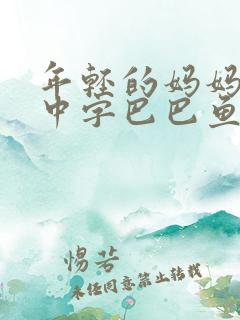 年轻的妈妈
中字巴巴鱼
惕若
未经同意禁止转载